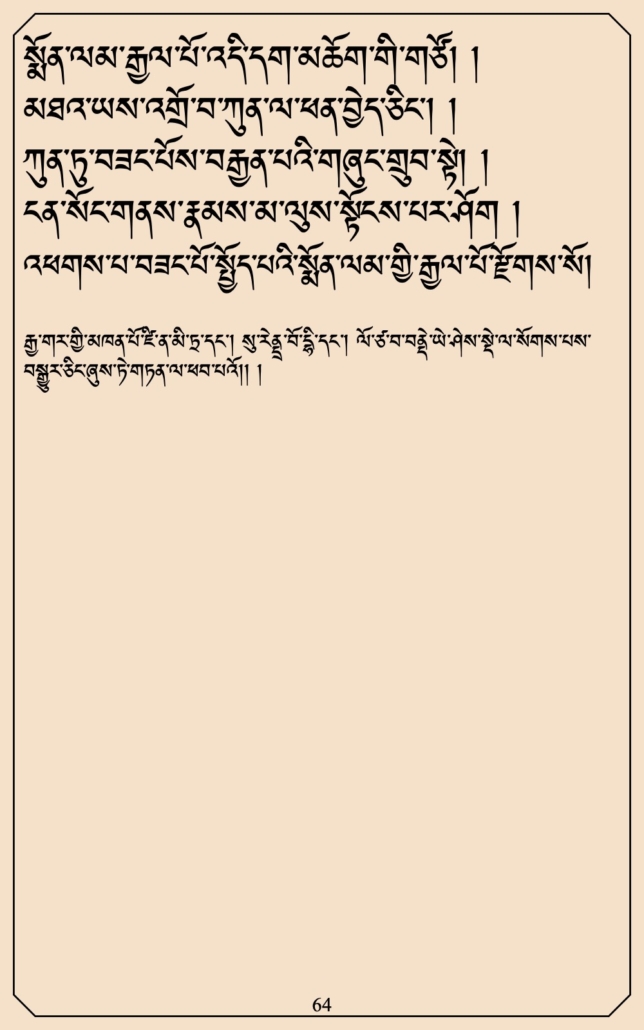 སྨོན་ལམ་རྒྱལ་པོ་འདི་དག་མཆོག་གི་གཙོ། །
མཐའ་ཡས་འགྲོ་བ་ཀུན་ལ་ཕན་བྱེད་ཅིང་། །
ཀུན་ཏུ་བཟང་པོས་བརྒྱན་པའི་གཞུང་གྲུབ་སྟེ། །
ངན་སོང་གནས་རྣམས་མ་ལུས་སྟོངས་པར་ཤོག །
འཕགས་པ་བཟང་པོ་སྤྱོད་པའི་སྨོན་ལམ་གྱི་རྒྱལ་པོ་རྫོགས་སོ།
རྒྱ་གར་གྱི་མཁན་པོ་ཛི་ན་མི་ཏྲ་དང་། སུ་རེནྡྲ་བོ་དྷི་དང་། ལོ་ཙ་བ་བནྡེ་ཡེ་ཤེས་སྡེ་ལ་སོགས་པས་
བསྒྱུར་ཅིང་ཞུས་ཏེ་གཏན་ལ་ཕབ་པའོ།། །
64